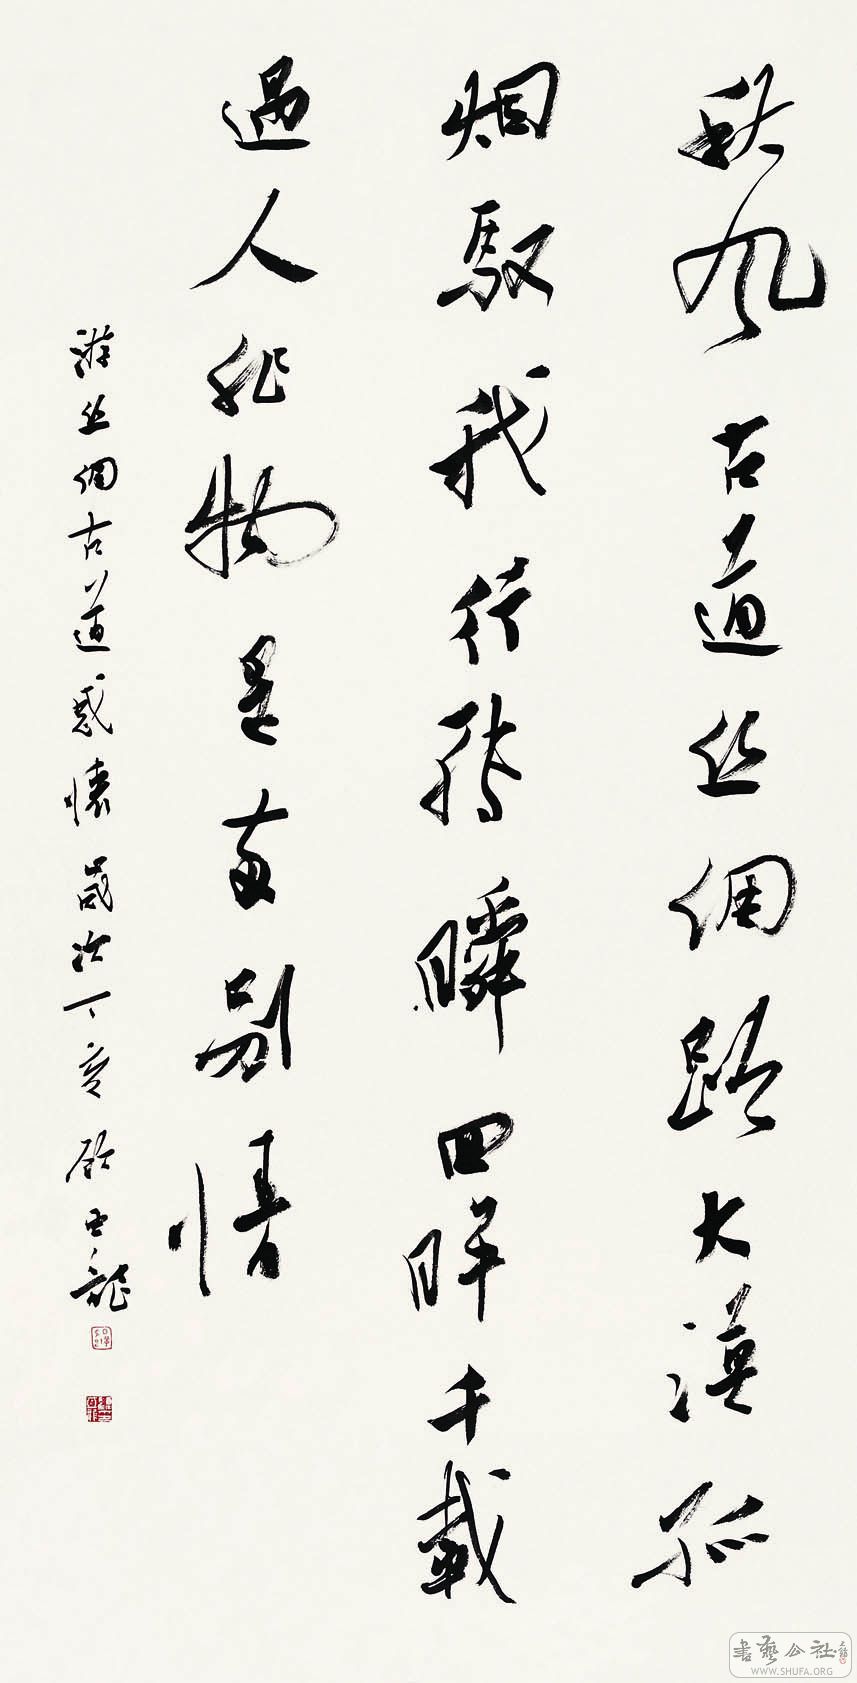 秋风古道丝绸路大漠孤
烟驭我行转瞬回眸千载
过人非物是两别情
游丝绸古道感怀岁次丁亥顾亚龙
書藝公社
WWW.SHUFA.ORG